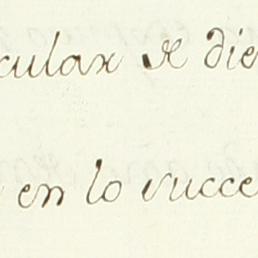 cular se die
en lo succe